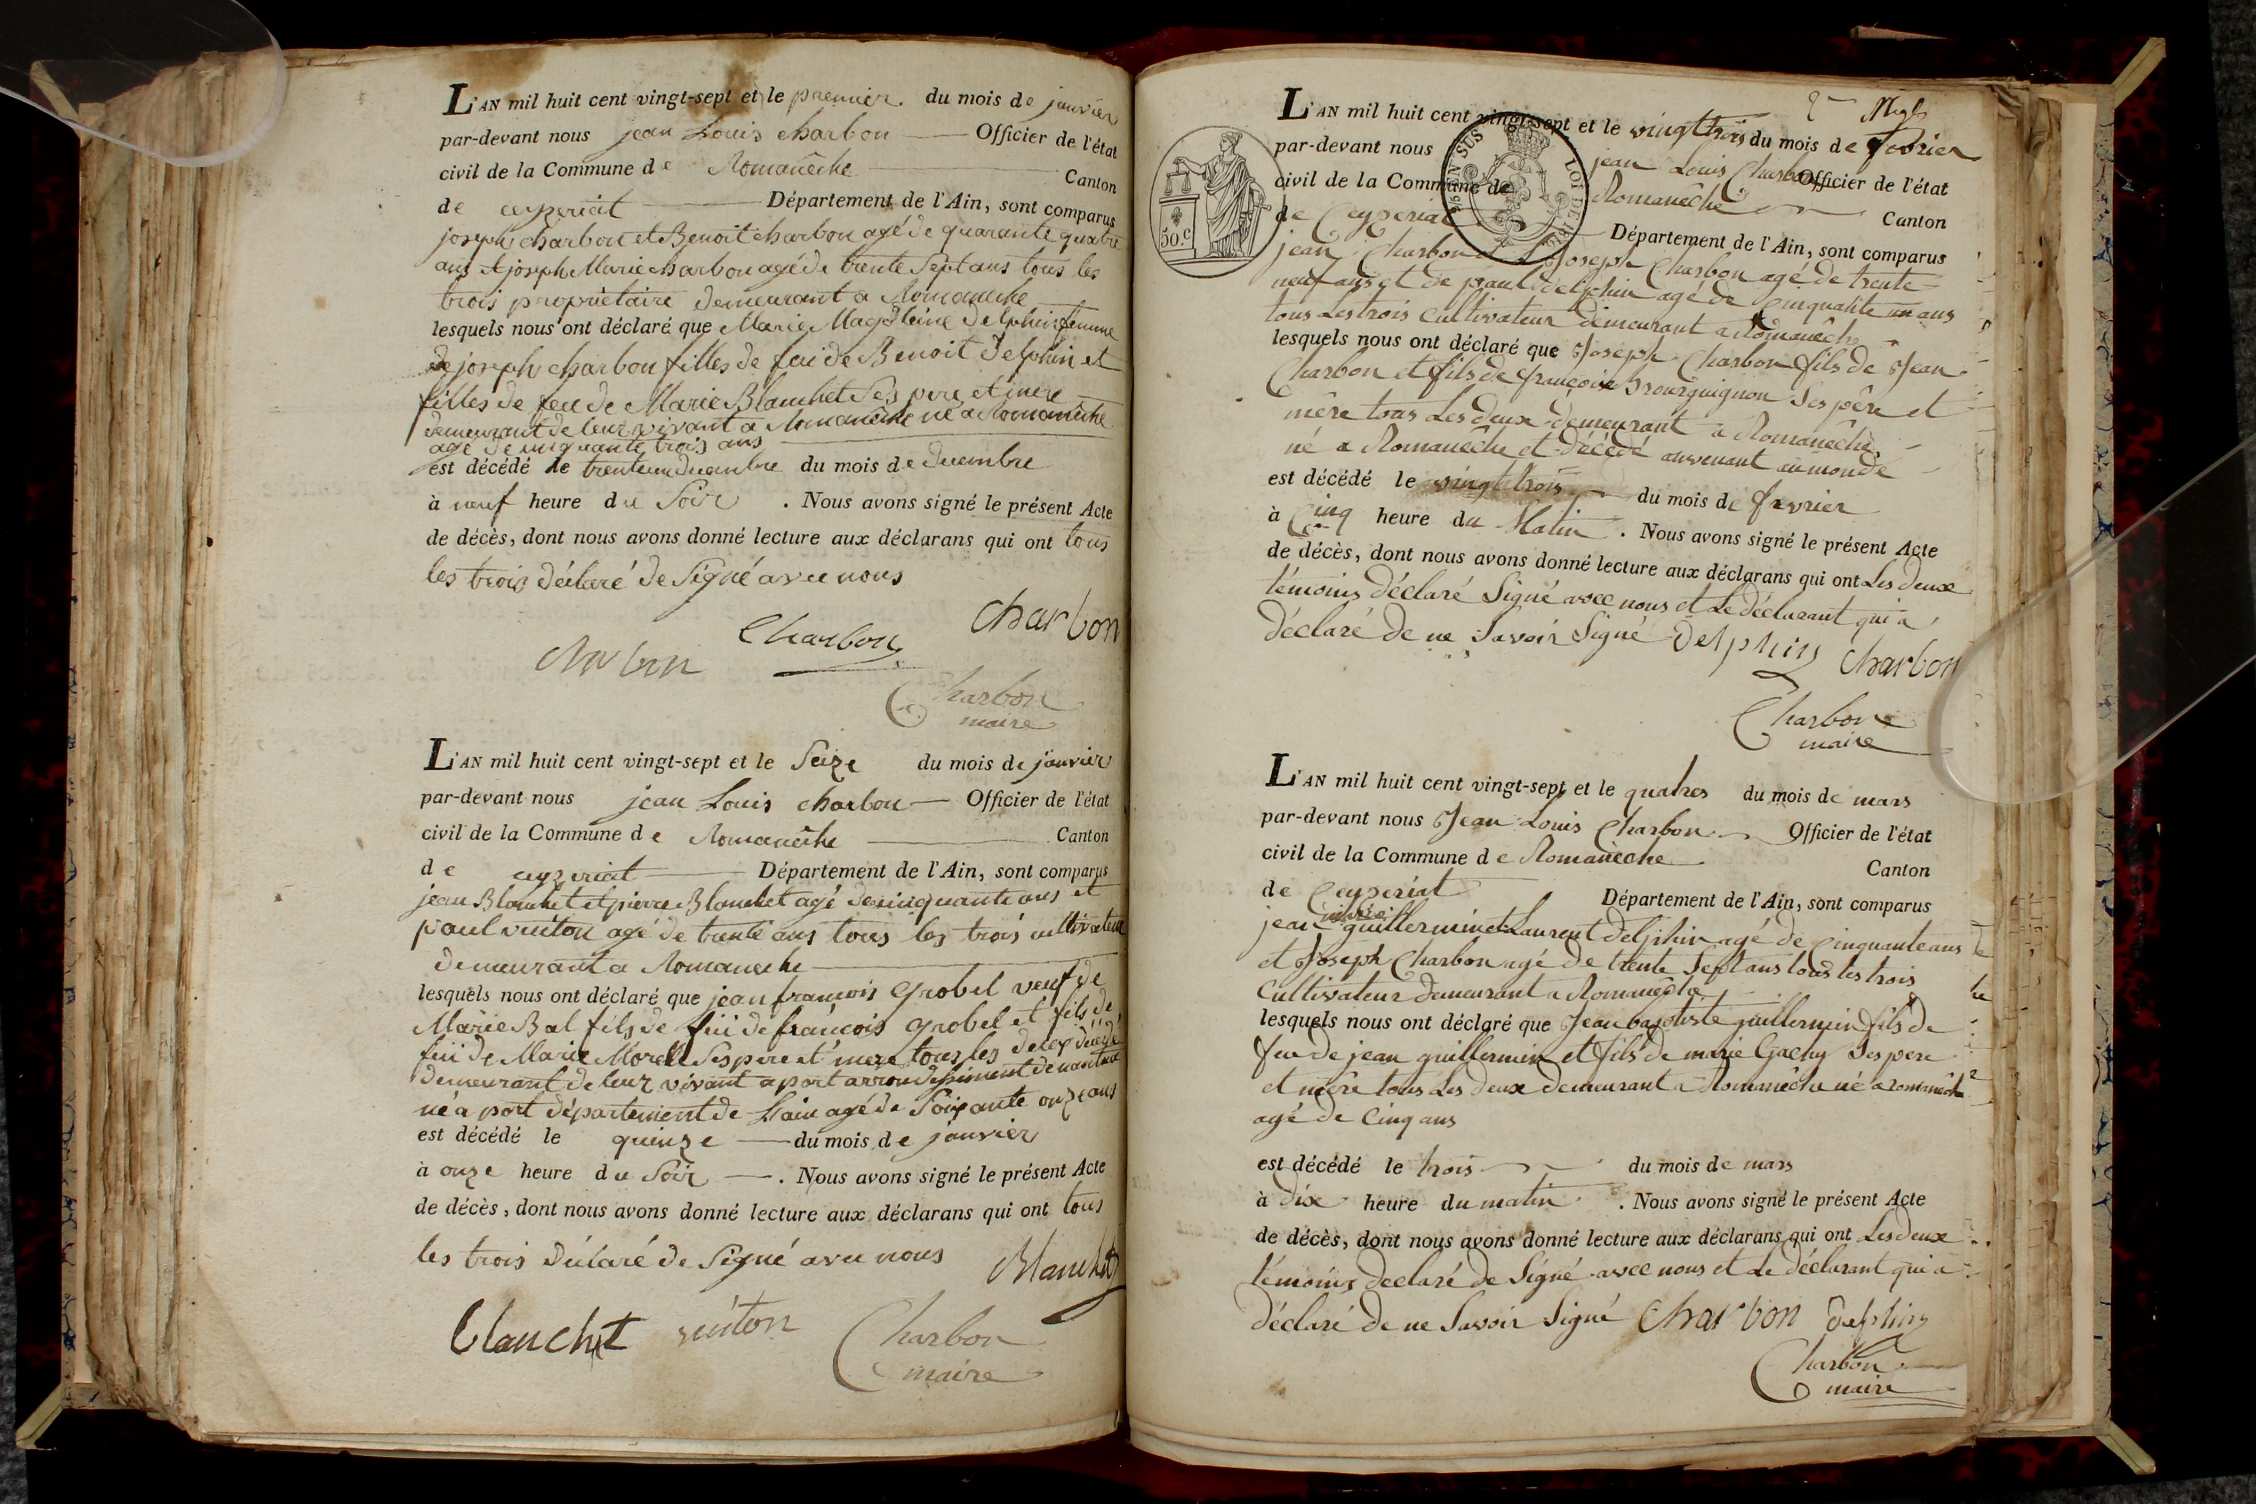 L'AN mil huit cent vingt-sept et le premier. du mois de janvier
par-devant nous jean Louis charbon Officier de l'état
civil de la Commune de Romanêche Canton
de ceyzeriat Département de l'Ain, sont comparus
joseph charbon et Benoit charbon agé de quarante quatre
ans et joseph Marie charbon agé de trente Sept ans tous les
trois proprietaire demeurant a Romaneche
lesquels nous ont déclaré que Marie Magdeleine Delphin femme
de joseph charbon filles de fui de Benoit Delphin et
filles de feu de Marie Blanchet Ses pere et mere
demeurant de leur vivant a Romanêche né a Romanêche
agé de cinquante trois ans
est décédé le trente un du mois de decembre
à neuf heure du Soir . Nous avons signé le présent Acte
de décès, dont nous avons donné lecture aux déclarans qui ont tous
les trois déclaré de Signé avec nous
charbon
Charbon
charbon
Charbon
maire
L'AN mil huit cent vingt-sept et le Seize du mois de janvier
par-devant nous jean Louis charbon Officier de l'état
civil de la Commune de Romanêche Canton
de ceyzeriat Département de l'Ain, sont comparus
jean Blanchet et pierre Blanchet agé de cinquante ans et
paul vuiton agé de trente ans tous les trois cultivateur
demeurant a Romaneche
lesquels nous ont déclaré que jean françois Grobel veuf de
Marie Bal fils de fui de françois Grobel et fils de
fui de Marie Morel Ses pere et mere tous les deux décédé
demeurant de leur vivant a port arrondissiment de nantua
né a port département de Lain agé de Soixante onze ans
est décédé le quinze du mois de janvier
à onze heure du Soir . Nous avons signé le présent Acte
de décès, dont nous avons donné lecture aux déclarans qui ont tous
les trois déclaré de Signé avec nous Blanchet
blanchet vuiton Charbon
maire
L'AN mil huit cent vingt-sept et le vingt trois du mois de fevrier
par-devant nous jean Louis Charbon Officier de l'état
civil de la Commune de Romanêche Canton
de Ceyzeriat Département de l'Ain, sont comparus
50.c
EN SUS
LOI DE
jean Charbon et Joseph Charbon agé de trente
neuf ans et de paul delphin agé de cinquante un ans
tous Les trois Cultivateur demeurant a Romanêche
lesquels nous ont déclaré que Joseph Charbon fils de Jean
Charbon et fils de françoise bourguignon Ses père et
mère tous Les deux demeurant a Romanêche
né a Romanêche et décédé anvenant au monde
est décédé le vingt trois du mois de fevrier
à Cinq heure du Matin . Nous avons signé le présent Acte
de décès, dont nous avons donné lecture aux déclarans qui ont Les deux
témoins déclaré Signé avec nous et Le déclarant qui a
déclaré de ne Savoir Signé delphin charbon
Charbon
maire
L'AN mil huit cent vingt-sept et le quatres du mois de mars
par-devant nous Jean Louis Charbon Officier de l'état
civil de la Commune de Romanêche Canton
de Ceyzeriat Département de l'Ain, sont comparus
jean guillermin et Laurent delphin agé de Cinquante ans
et Joseph Charbon agé de trente Sept ans tous les trois
Cultivateur demeurant a Romanêche
lesquels nous ont déclaré que Jean baptiste guillermin fils de
feu de jean guillermin et fils de marie Gachy Ses pere
et mère tous Les deux demeurant a Romanêche né a romanêche
agé de Cinq ans
est décédé le trois du mois de mars
à dix heure du matin . Nous avons signé le présent Acte
de décès, dont nous avons donné lecture aux déclarans qui ont Les deux
témoins declaré de Signé avec nous et Le déclarant qui a
déclaré de ne Savoir Signé charbon delphin
Charbon
maire